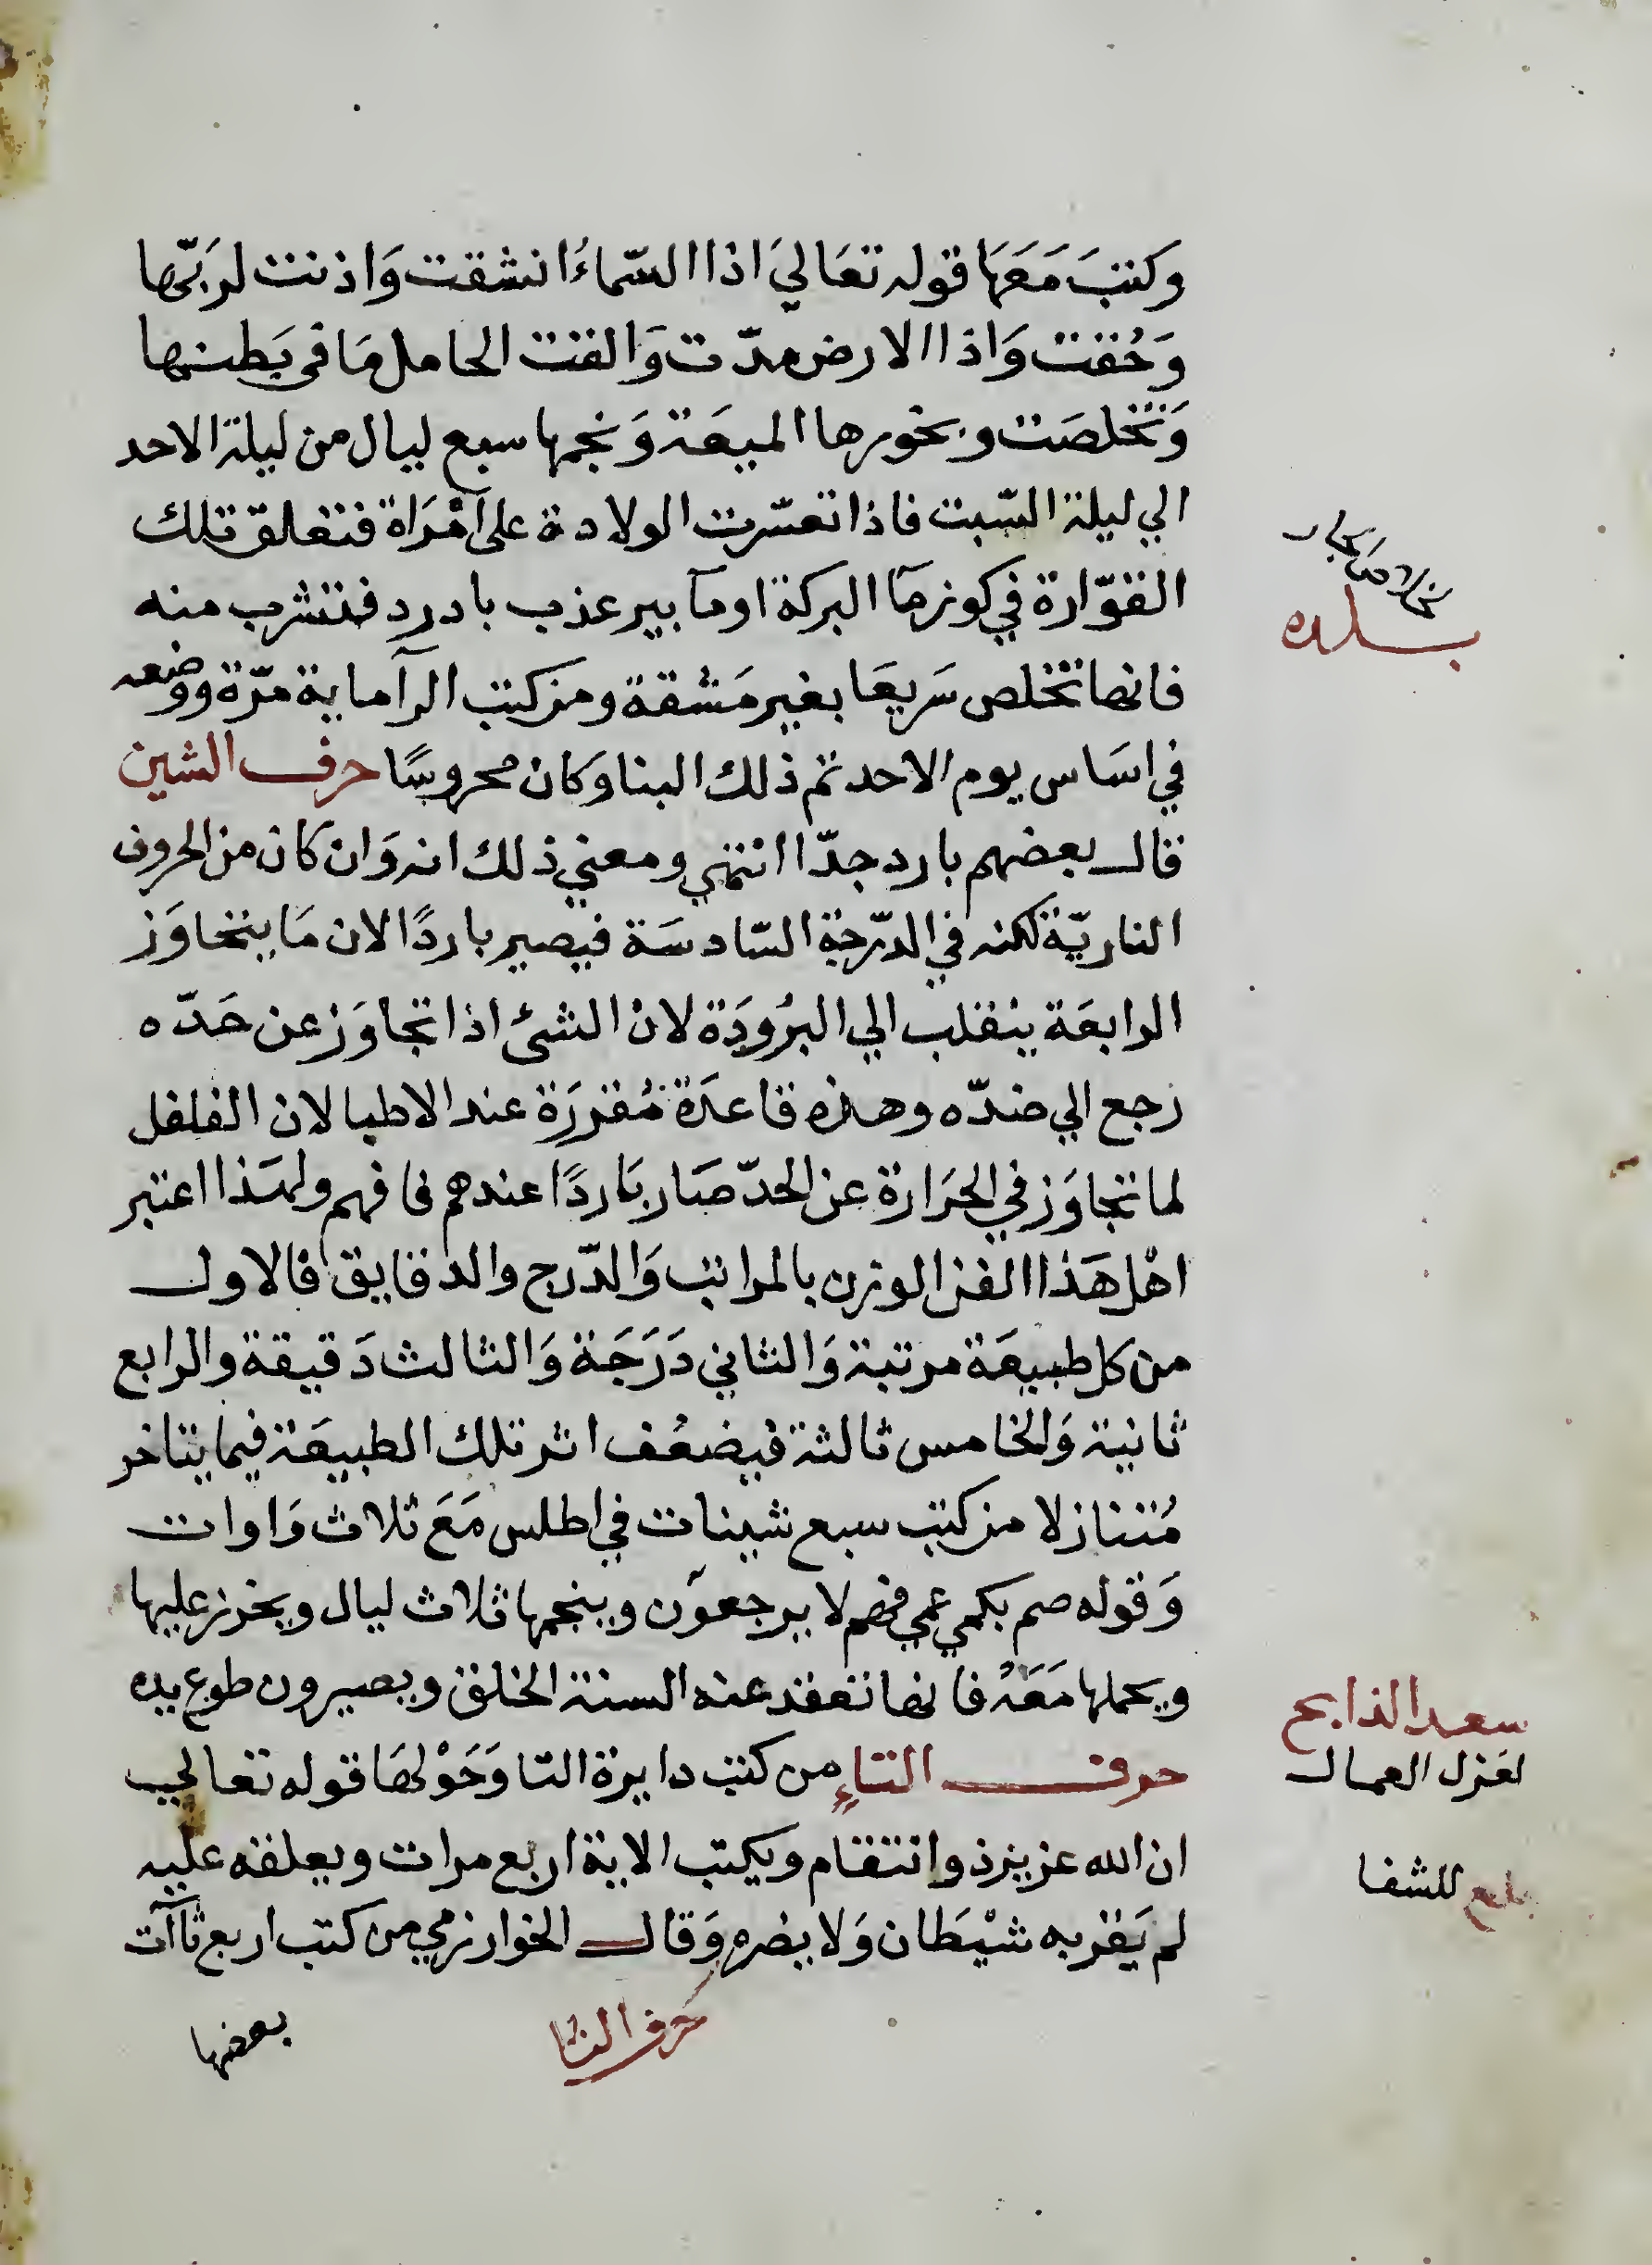 وكتبَ مَعَها قوله تعَاليَ اذا السّماءُ انشقت وَاذنت لرَبّها
وَحُقت وَاذا الارض مدّت وَالقت الحامل مَا في بَطنها
وَتخلصَت وبخورها الميعَة وَنجمها سبع ليال من ليلة الاحد
الي ليلة السّبت فاذا تعسّرت الولادة على امْرَاة فتغلق تلك
القوّارة في كوز مآ البركة او مآ بير عذب بادرد فتشرب منه
فانها تخلص سَريعَا بغير مَشقة ومن كتب الرآ ماية مرّة ووضعه
في اسَاس يوم الاحد تم ذلك البنا وَكان محروسًا حرف الشين
قال بعضهم بارد جدّا انتهي ومعني ذلك انه وَان كان من الحروف
الناريّة لكنه في الدّرجة السّادسَة فيصير باردًا لان مَا يتجاوَز
الرابعَة ينقلب الي البرُودَة لان الشئ اذا تجاوَز عن حَدّه
رجع الي ضدّه وهذه قاعدَة مُقررَة عند الاطبا لان الفلفل
لما تجاوَز في الحرَارة عن الحدّ صَار بَاردًا عندهم فافهم ولهَذا اعتبر
اهْل هَذا الفن الوزن بالمراتب وَالدّرج والدقايق فالاول
من كل طبيعَة مرتبة وَالثاني دَرَجَة وَالثالث دَقيقة والرابع
ثانية وَالخامس ثالثة فيضعُف اثر تلك الطبيعَة فيما يتاخر
مُتنازلا من كتب سبع شينات في اطلس مَعَ ثلاث وَاوات
وَقوله صم بكم عمي فهم لا يرجعون وينجمها ثلاث ليال ويخرز عليها
ويحملها مَعَهُ فانها تعقد عنه السنة الخلق ويصيرون طوع يده
حرف التاءِ من كتب دايرة التا وَحَوْلهَا قوله تعالي
ان الله عزيز ذو انتقام ويكتب الاية اربع مرات ويعلقه عليه
لم يَقربه شيْطان وَلا يضره وَقال الخوارزمي من كتب اربع تاآت
بعضها
حرف التا
بلده
سعد الذابح
لعزل العمال
بلع للشفا